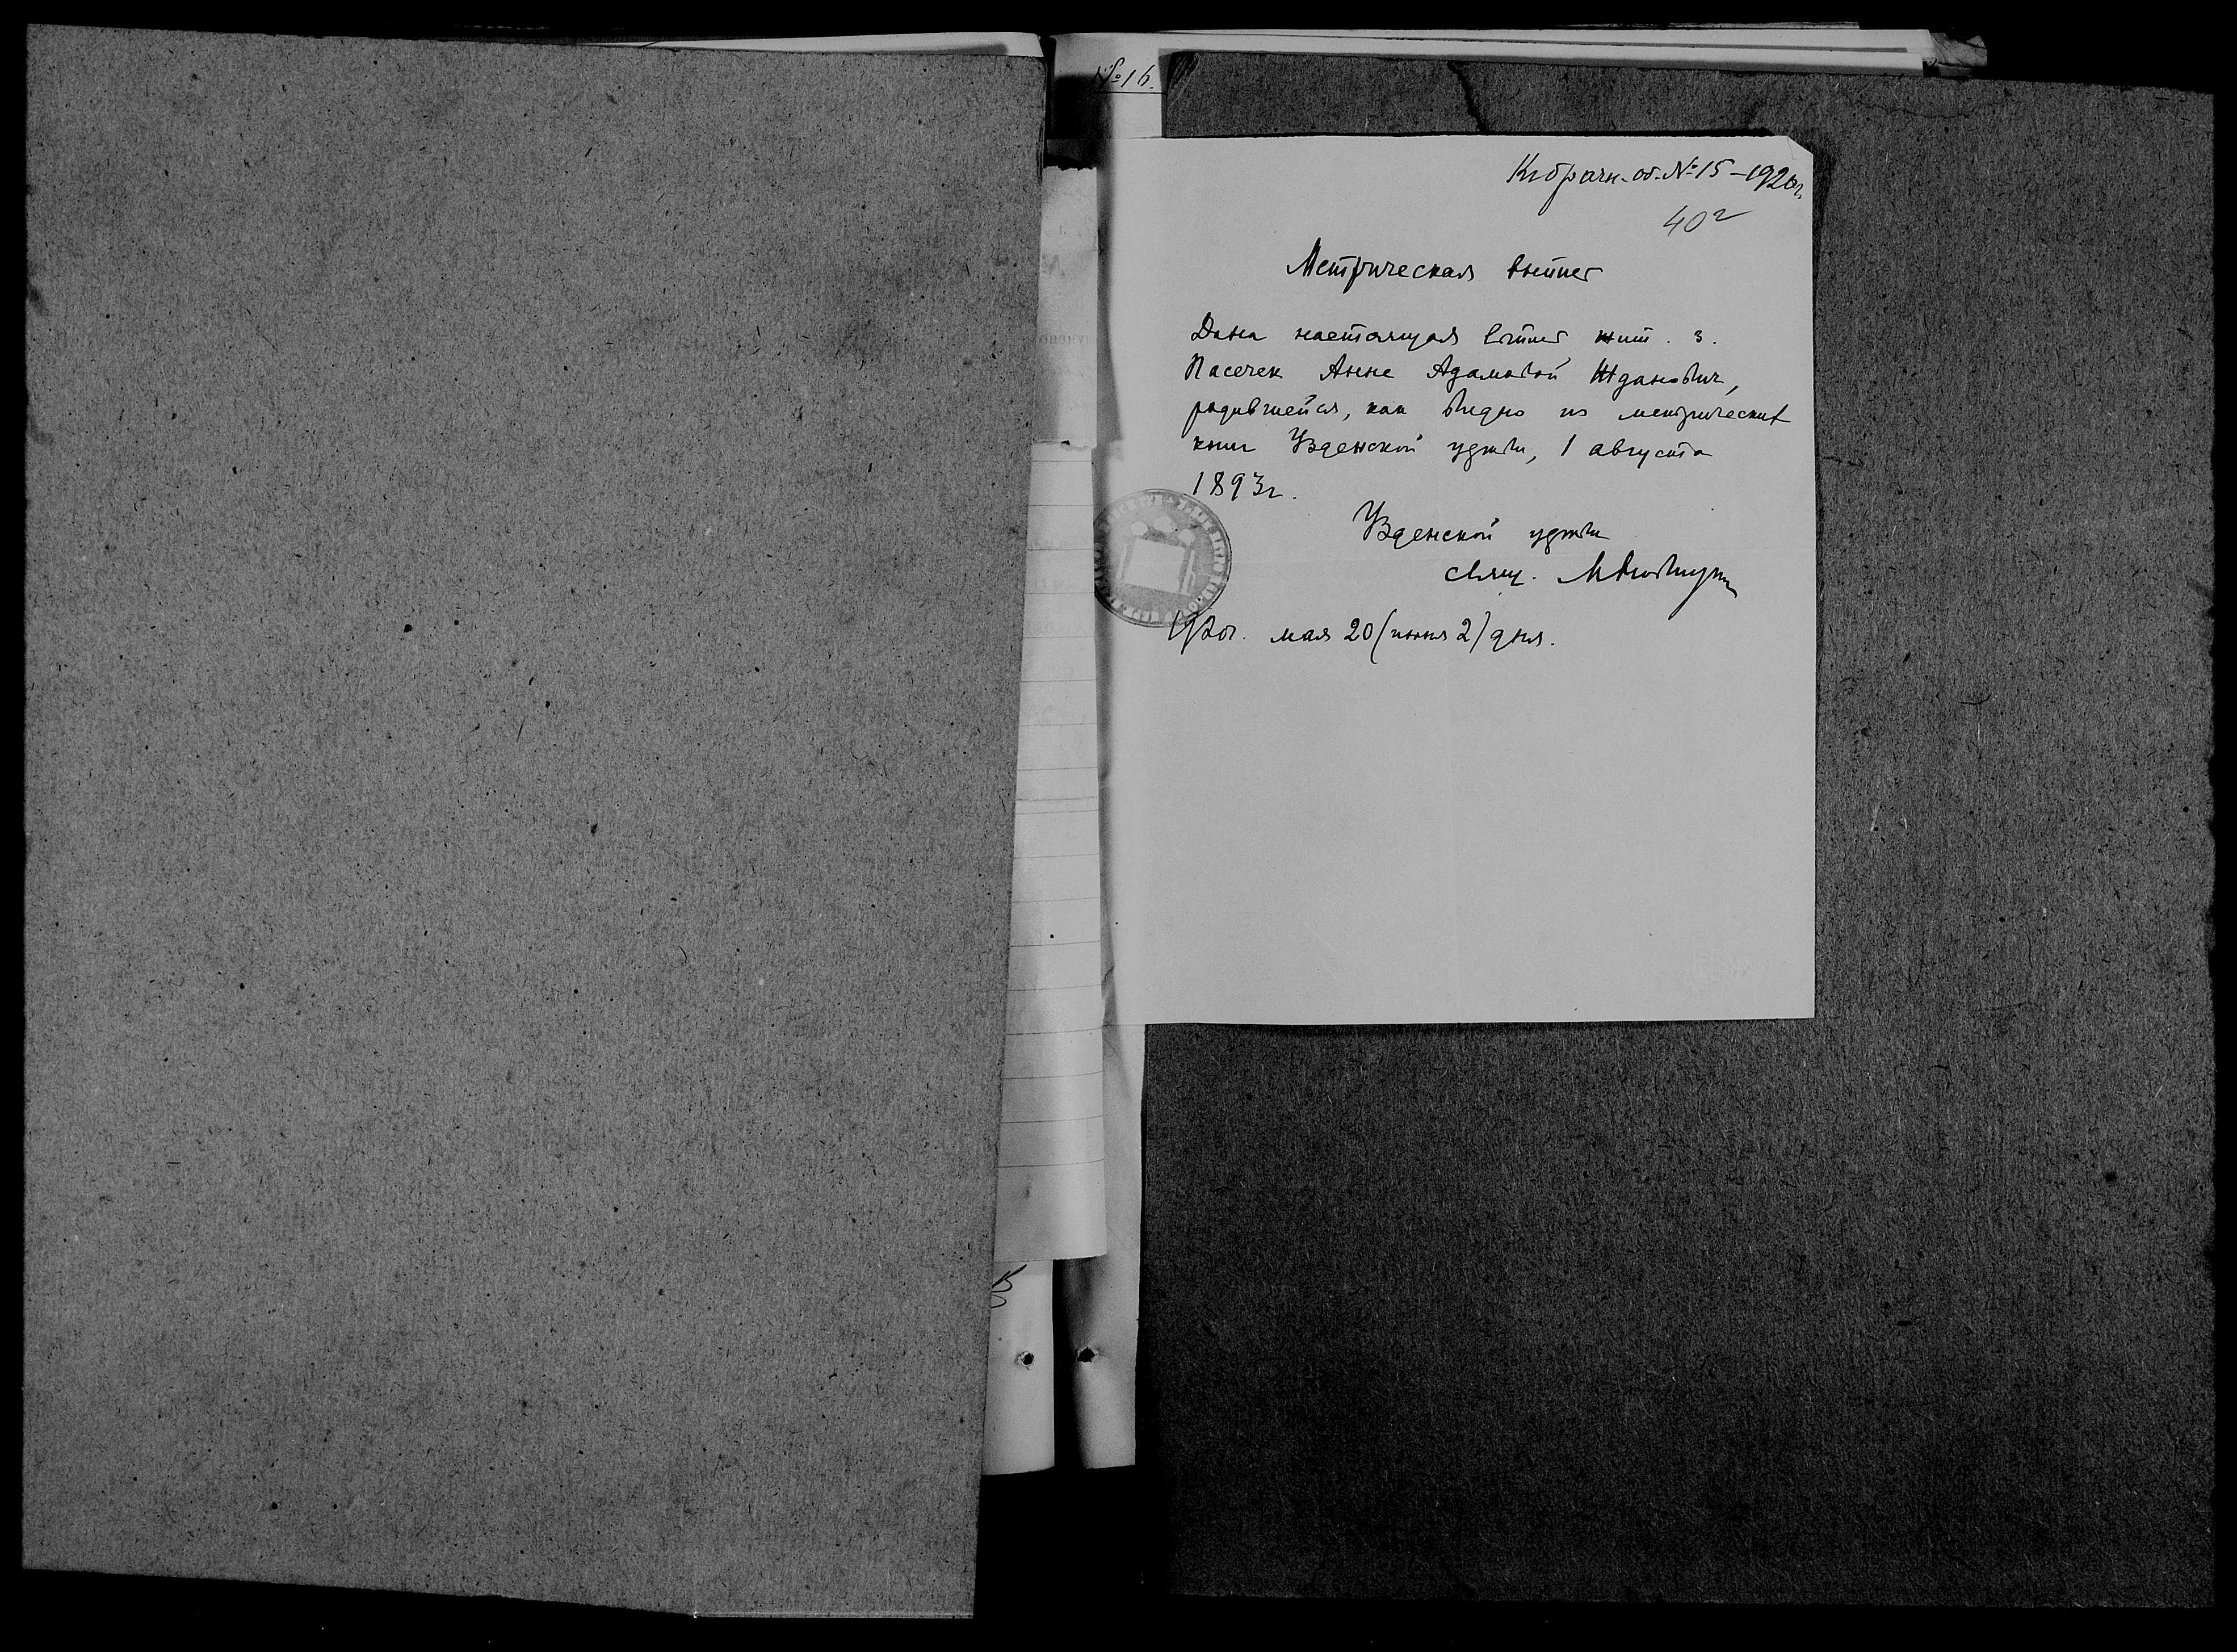 № 16.
Къ брачн. об. № 15 – 1920 г.
40
Метрическая выпись
Дана настоящая выпись жит. з.
Пасечек Анне Адамовой Жданович,
родившейся, как видно из метрических
книг Узденской церкви, 1 августа
1893 г.
Узденской церкви
свящ.
1920 г. мая 20 (июня 2) дня.